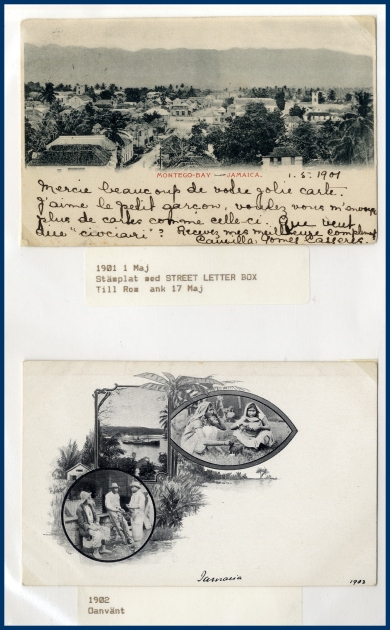 MONTEGO-BAY — JAMAICA.
1.5.1901
Mercie beaucoup de votre jolie carte.
J'aime le petit garcon, voulez vous m'envoyer
plus de cartes comme celle-ci. Que veut
dire "ciociari"? Recevez mes meilleurs compliments
Camilla Gomes Casseres.
1901 1 Maj
Stämplat med STREET LETTER BOX
Till Rom ank 17 Maj
Jamaica
1902
1902
Oanvänt